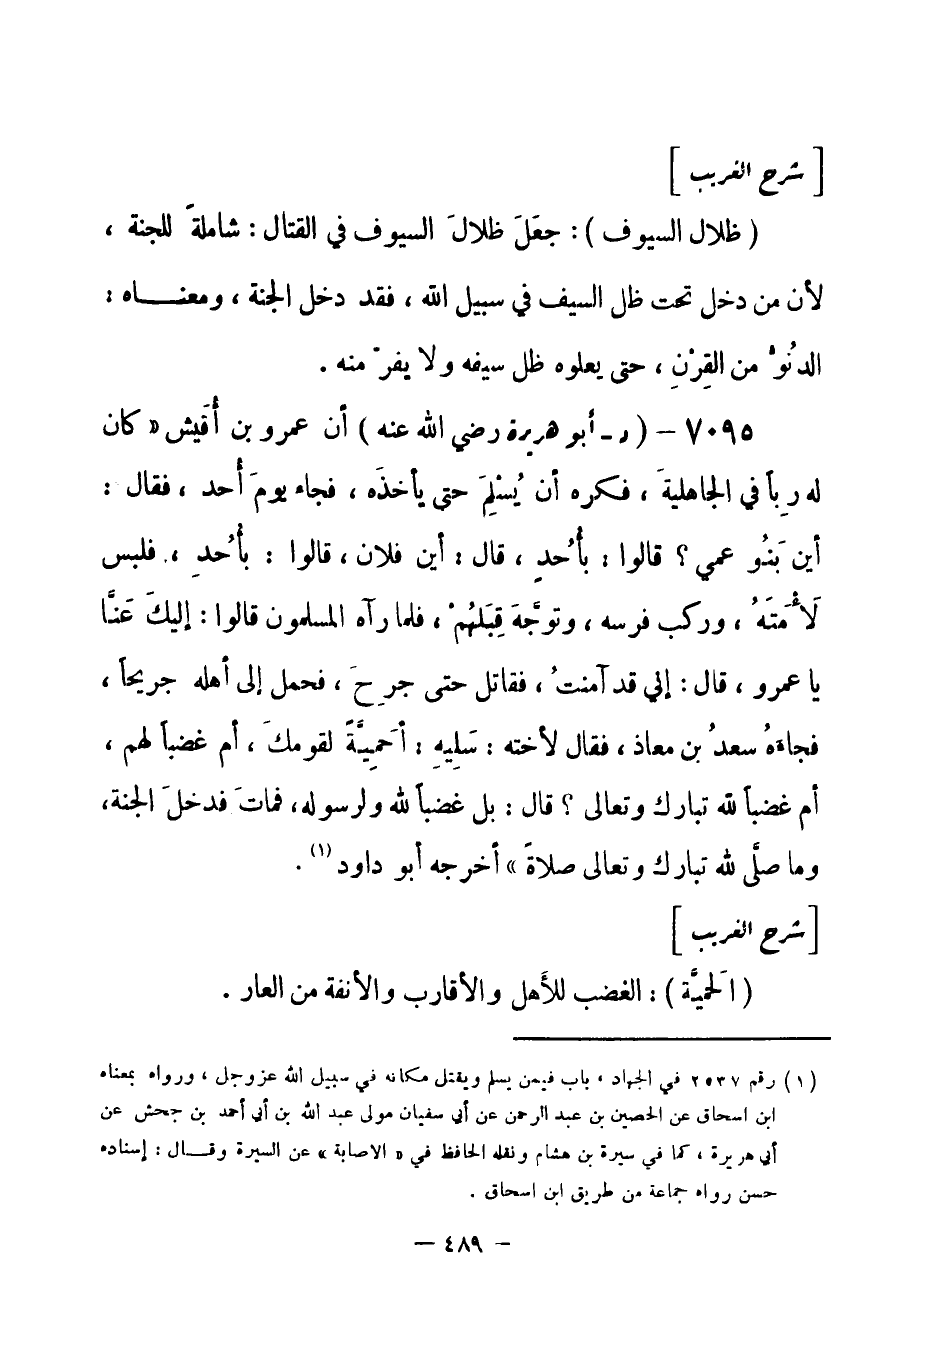 [ شرح الغريب ]
( ظلال السيوف ) : جعَلَ ظلالَ السيوف في القتال : شاملةً للجنة ،
لأن من دخل تحت ظل السيف في سبيل الله ، فقد دخل الجنة ، ومعنــاه :
الدنُوُّ من القِرْنِ ، حتى يعلوه ظل سيفه ولا يفرّ منه .
٧٠٩٥ – ( د - أبو هريرة رضي الله عنه ) أن عمرو بن أُقَيش « كان
له رِباً في الجاهلية ، فكره أن يُسْلِمَ حتى يأخذَه ، فجاء يومَ أُحد ، فقال :
أين بَنُو عمي ؟ قالوا : بأُحدٍ ، قال : أين فلان ، قالوا : بأُحدٍ ، فلبس
لَأْمَتَهُ ، وركب فرسه ، وتوَّجهَ قِبَلَهُمْ ، فلما رآه المسلمون قالوا : إليكَ عَنَّا
يا عمرو ، قال : إني قد آمنتُ ، فقاتل حتى جرِحَ ، فحمل إلى أهله جريحاً ،
فجاءَهُ سعدُ بن معاذ ، فقال لأخته : سَلِيهِ : أَحَمِيَّةً لقومكَ ، أم غضباً لهم ،
أم غضباً لله تبارك وتعالى ؟ قال : بل غضباً لله ولرسوله، فماتَ فدخلَ الجنة،
وما صلَّى لله تبارك وتعالى صلاةً » أخرجه أبو داود (١) .
[ شرح الغريب ]
( الَحمِيَّة ) : الغضب للأهل والأقارب والأنفة من العار .
(١) رقم ٢٥٣٧ في الجهاد ، باب فيمن يسلم ويقتل مكانه في سبيل الله عز وجل ، ورواه بمعناه
ابن اسحاق عن الحصين بن عبد الرحمن عن أبي سفيان مولى عبد الله بن أبي أحمد بن جحش عن
أبي هريرة ، كما في سيرة بن هشام ونقله الحافظ في « الاصابة » عن السيرة وقــال : إسناده
حسن رواه جماعة من طريق ابن اسحاق .
– ٤٨٩ –